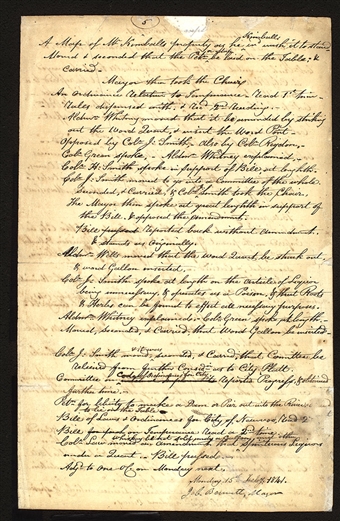 5
A Map of Mr Kimballs property as he wish it to stand
Moved & seconded that the Petn be laid on the Table, &
carried.
Mayor then took the Chair
An Ordinance Relative to Temperance Read 1st time
Rules dispensed with, & Red 2nd Reading.
Alderm Whitney moved that it be amended by striking
out the Word Quart, & insert the Word
Opposed by Col. J. Smith, also by Col. Rigdon,
Col. Green spoke, Alderm Whitney explained,
Col. H. Smith spoke in support of Bill, at length.
Col. J. Smith moved to go into a Committee of the whole
Seconded, & Carried, & Col. Smith took the Chair.
The Mayor then spoke at great length in support of
the Bill, & opposed the amendment.
Bill reported back without amendment
& stands as originally.
Alderm Wells moved that the Word Quart be struck out
& word Gallon inserted.
Col. J. Smith spoke at length on the article of Liquor
being unnecessary & operates as a Poison, & that Roots
& Herbs can be found to effect all necessary purposes.
Alderm Whitney explained. Col. Green spoke at length.
Moved, Seconded, & Carried, that Word Gallon be inserted
Col. J. Smith moved, seconded, & Carrid, that Committee be
relieved from further Consid. as to City Platt.
Committee on Reported Progress, & obtained
further time.
Petn for liberty to make a Dam or Pier out into the River
to lie on the Table
Bill of Laws & Ordinances for City of Nauvoo, Read 2
Bill on Temperance Read
Col. Law moved an amendment spirituous Liquors
under a Quart. Bill
Adjd to one oC. on Monday next.
Monday 15 Feby 1841.
J. C. Bennett, Mayor